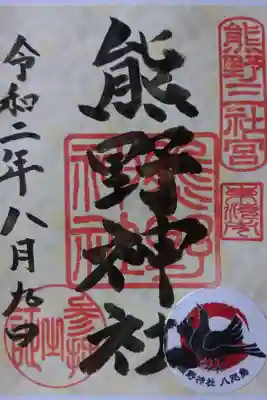 熊野三社宮
熊野神社
熊野神社
令和二年八月九日
参拝之証
熊野神社 八咫烏